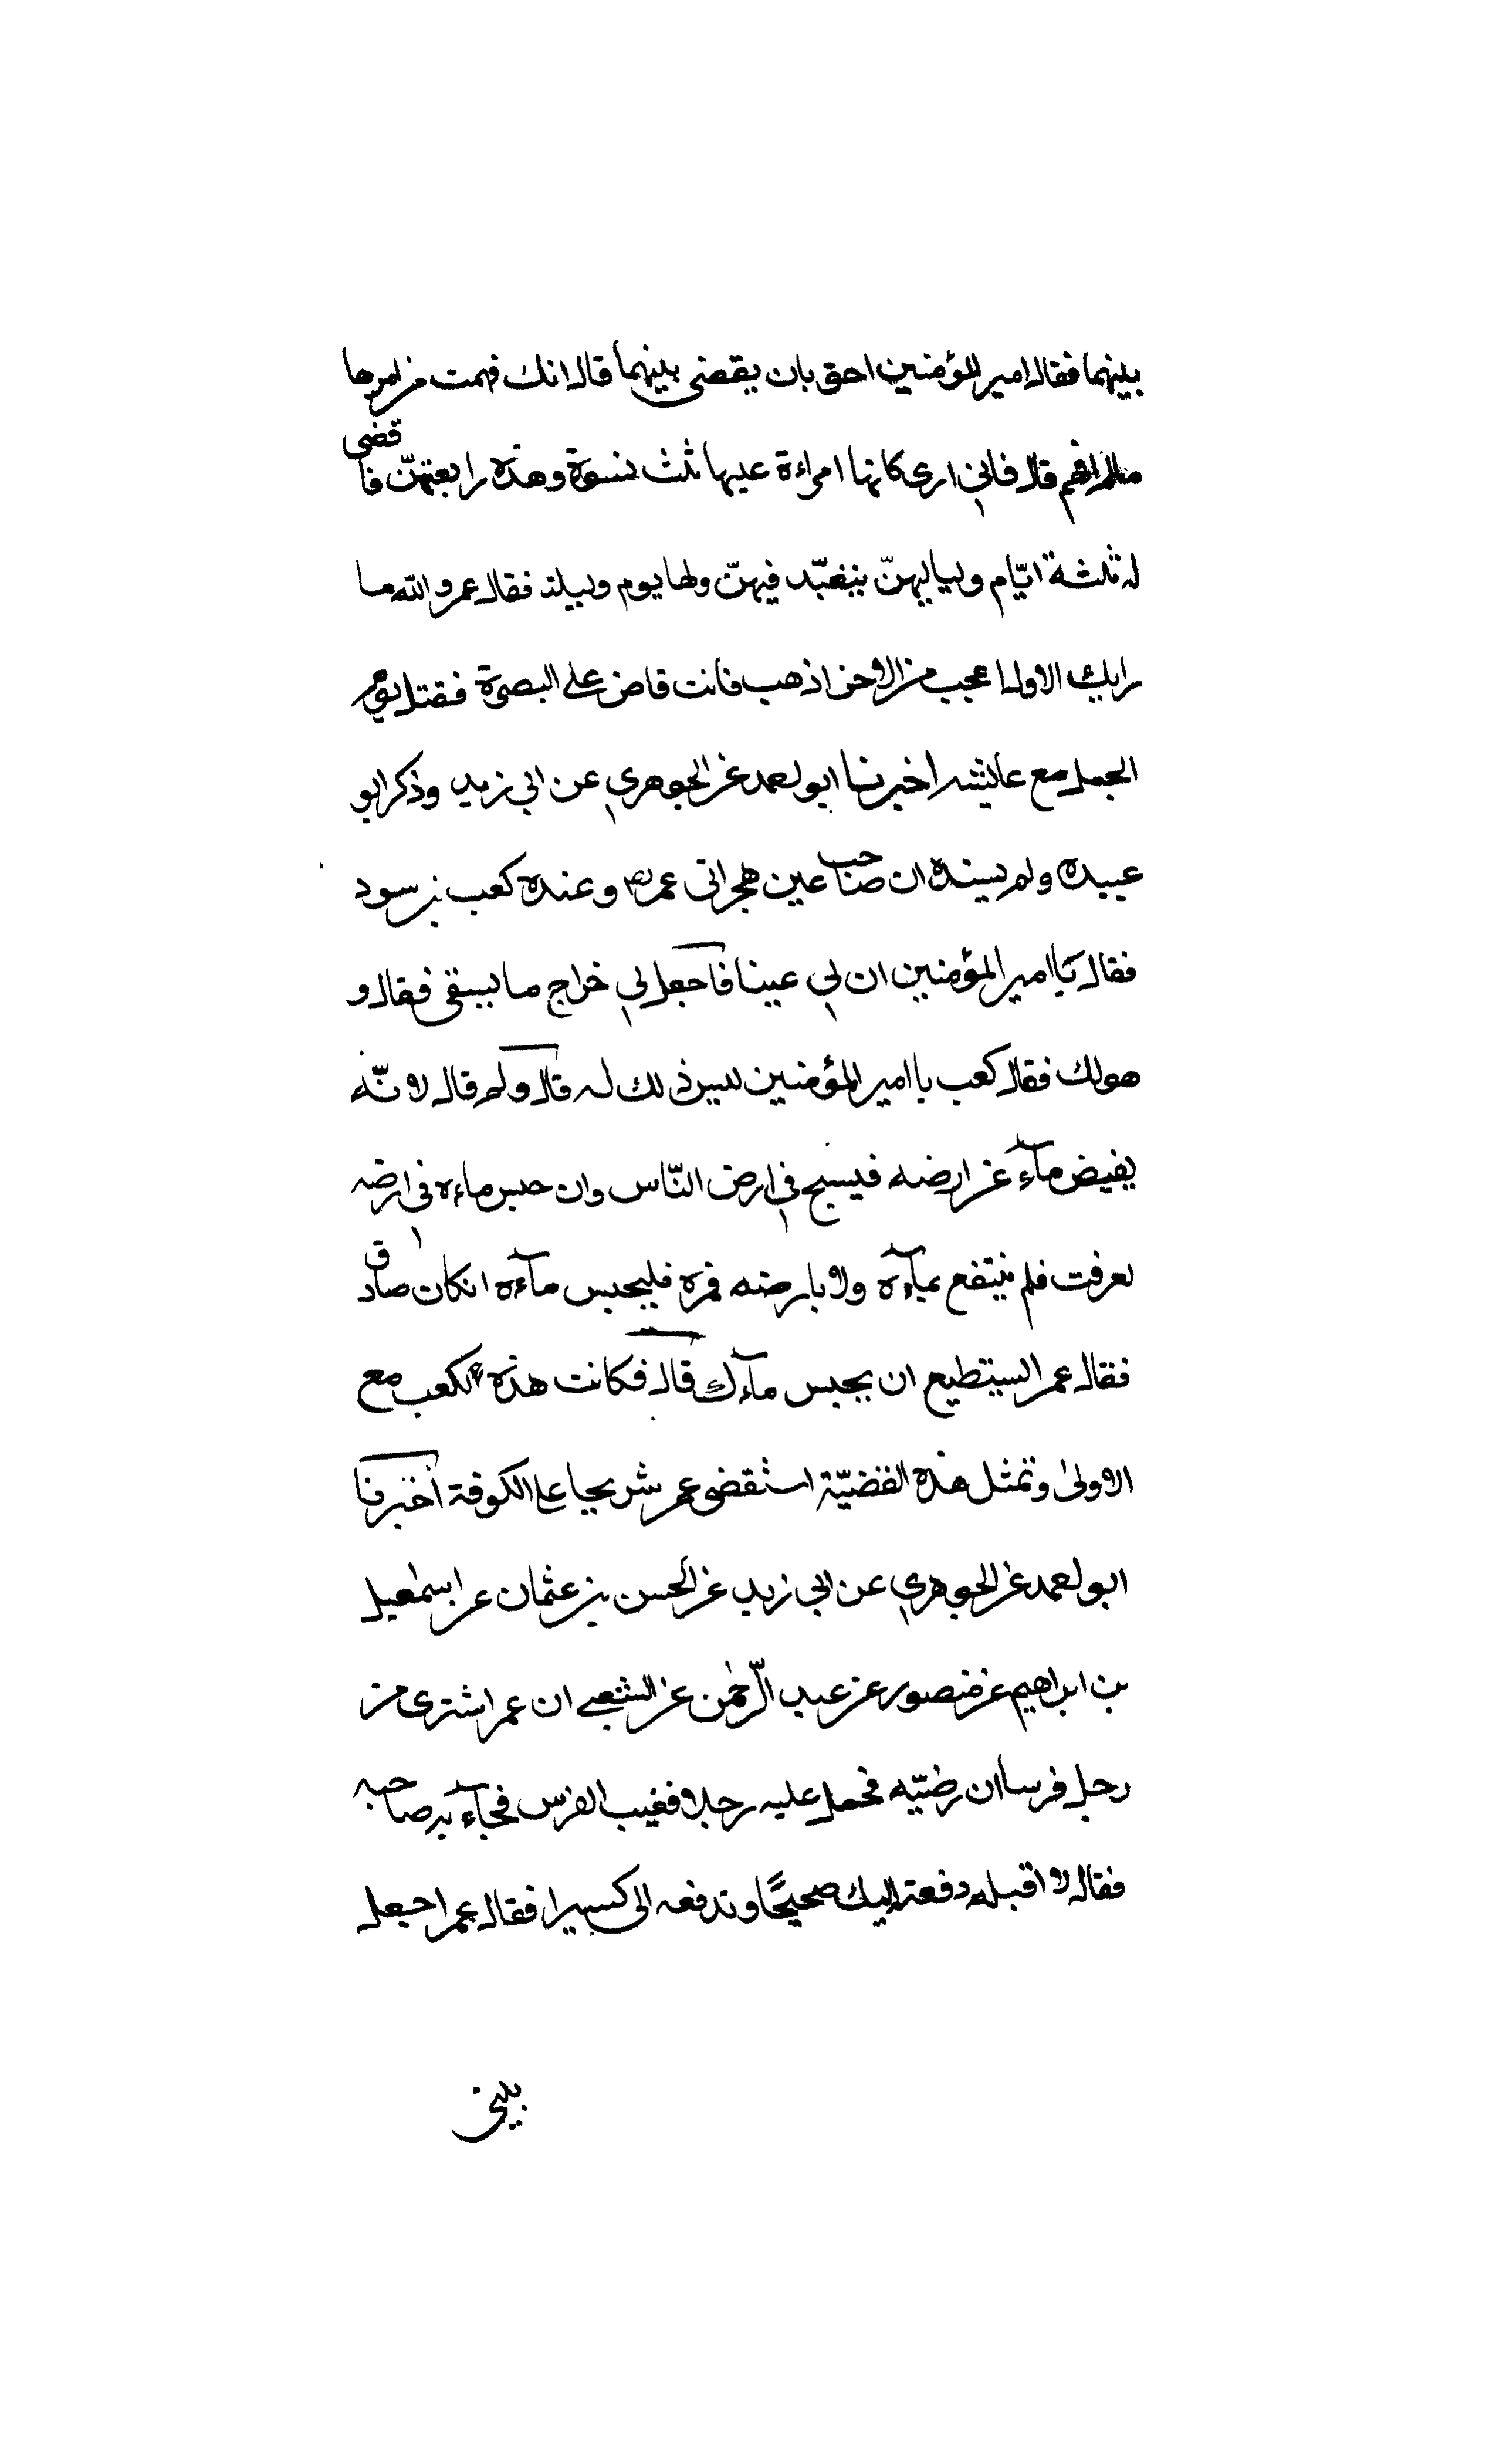 بينهما فقال امير المؤمنين احق بان يقضى بينهما قال انك فهمت من امرها
مالم افهم قال فانى ارى كانها امراءة عيها ثلث نسوة وهذه رابعتهنّ فاقضى
له ثلثة ايّام ولياليهنّ يتعبّد فيهنّ ولها يوم وليلة فقال عمر والله ما
رايك الاول اعجب من الاخر اذهب فانت قاض على البصرة فقتل يوم
الجمل مع عايشه اخبرنا ابو احمد عن الجوهري عن ابي زيد وذكر ابو
عبيده ولم يسنده ان صاحب عين هجر اتى عمر رض وعنده كعب بن سود
فقال يا امير المؤمنين ان لي عينا فاجعل لي خراج ما يسقى فقال و
هو لك فقال كعب يا امير المؤمنين ليس ذلك له قال ولم قال لانّه
يفيض مآء عن ارضه فيسيح في ارض النّاس وان حبس ماءه في ارضه
لغرقت فلم ينتفع بمآءه ولا بارضه فمره فليحبس مآءه انكان صادق
فقال عمر اتستطيع ان يحبس مآءك قال فكانت هذه لكعب مع
الاولى وتمثل هذه القضيّة استقضى عمر شريحا على الكوفة اخبرنا
ابو احمد عن الجوهري عن ابي زيد عن الحسن بن عثمان عن اسمعيل
بن ابراهيم عن منصور عن عبد الرّحمٰن عن الشعبي ان عمر اشترى من
رجل فرسا ان رضيّه فحمل عليه رجلا فعيب الفرس فجآء به صاحبه
فقال لا اقبله دفعته اليك صحيحًا وتدفعه الى كسيرا فقال عمر اجعل
بينى